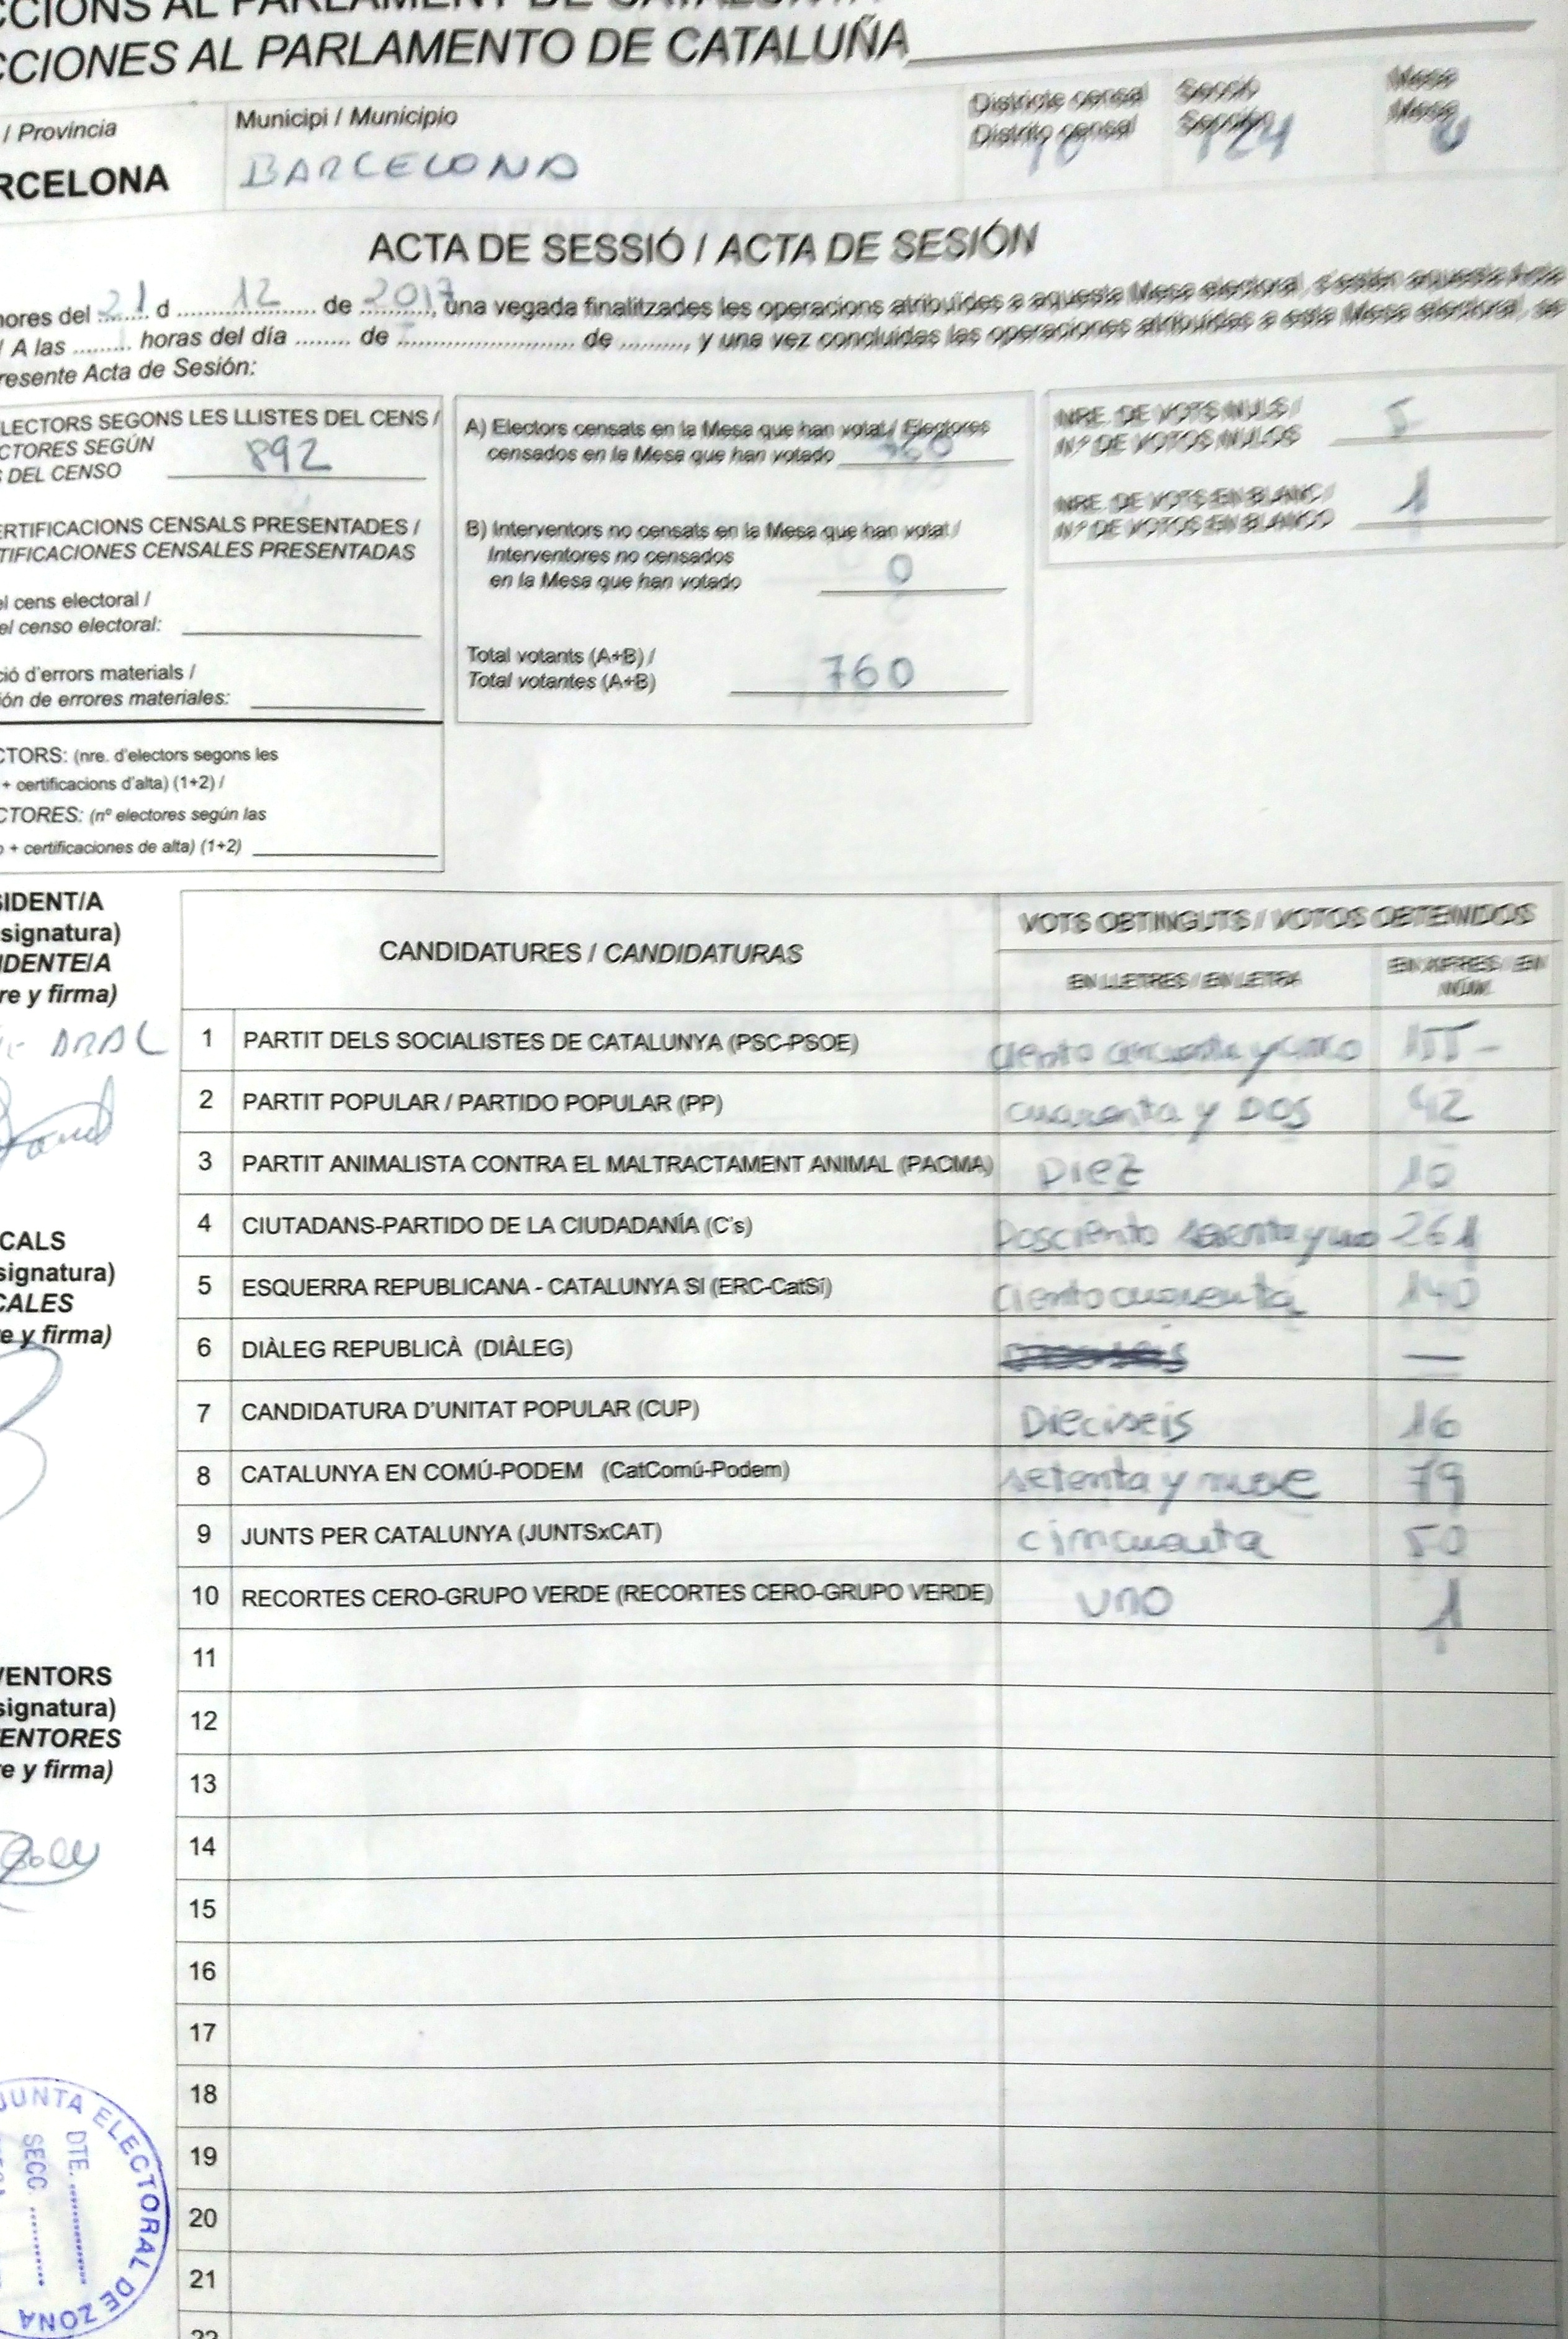 CCIONS AL PARLAMENT DE CATALUNYA
CCIONES AL PARLAMENTO DE CATALUÑA
/ Provincia
RCELONA
Municipi / Municipio
BARCELONA
Districte censal
Distrito censal
10
Secció
Sección
124
Mesa
Mesa
U
ACTA DE SESSIÓ / ACTA DE SESIÓN
hores del 21 d 12 de 2017, una vegada finalitzades les operacions atribuïdes a aquesta Mesa electoral, s'estén aquesta
/ A las ......... horas del día ........ de ........................... de ........., y una vez concluidas las operaciones atribuidas a esta Mesa electoral, se
resente Acta de Sesión:
LECTORS SEGONS LES LLISTES DEL CENS /
CTORES SEGÚN
S DEL CENSO 892
ERTIFICACIONS CENSALS PRESENTADES /
TIFICACIONES CENSALES PRESENTADAS
el cens electoral /
el censo electoral:
ció d'errors materials /
ión de errores materiales:
CTORS: (nre. d'electors segons les
+ certificacions d'alta) (1+2) /
CTORES: (nº electores según las
o + certificaciones de alta) (1+2)
A) Electors censats en la Mesa que han votat / Electores
censados en la Mesa que han votado 760
B) Interventors no censats en la Mesa que han votat /
Interventores no censados
en la Mesa que han votado 0
Total votants (A+B) /
Total votantes (A+B) 760
NRE. DE VOTS NULS /
Nº DE VOTOS NULOS 5
NRE. DE VOTS EN BLANC /
Nº DE VOTOS EN BLANCO 1
SIDENT/A
signatura)
IDENTE/A
re y firma)
ARAL
CALS
signatura)
CALES
re y firma)
VENTORS
signatura)
ENTORES
re y firma)
CANDIDATURES / CANDIDATURAS
VOTS OBTINGUTS / VOTOS OBTENIDOS
EN LLETRES / EN LETRA
EN XIFRES / EN
NÚM.
1 PARTIT DELS SOCIALISTES DE CATALUNYA (PSC-PSOE) ciento cincuenta y cinco 155-
2 PARTIT POPULAR / PARTIDO POPULAR (PP) cuarenta y DOS 42
3 PARTIT ANIMALISTA CONTRA EL MALTRACTAMENT ANIMAL (PACMA) DIEZ 10
4 CIUTADANS-PARTIDO DE LA CIUDADANÍA (C's) Dosciento sesenta y uno 261
5 ESQUERRA REPUBLICANA - CATALUNYA SI (ERC-CatSí) Ciento cuarenta 140
6 DIÀLEG REPUBLICÀ (DIÀLEG) —
7 CANDIDATURA D'UNITAT POPULAR (CUP) Dieciseis 16
8 CATALUNYA EN COMÚ-PODEM (CatComú-Podem) setenta y nueve 79
9 JUNTS PER CATALUNYA (JUNTSxCAT) cincuenta 50
10 RECORTES CERO-GRUPO VERDE (RECORTES CERO-GRUPO VERDE) uno 1
11
12
13
14
15
16
17
18
19
20
21
22
JUNTA ELECTORAL DE ZONA
DTE.
SECC.